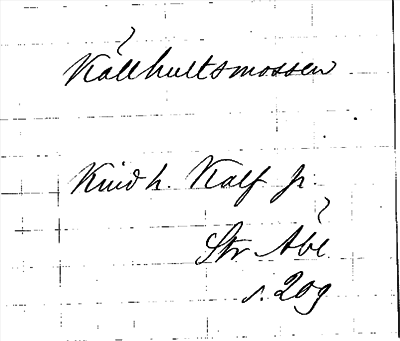 Källhultsmossen
Kind h. Kalf s:n
Str Åbe
s. 209